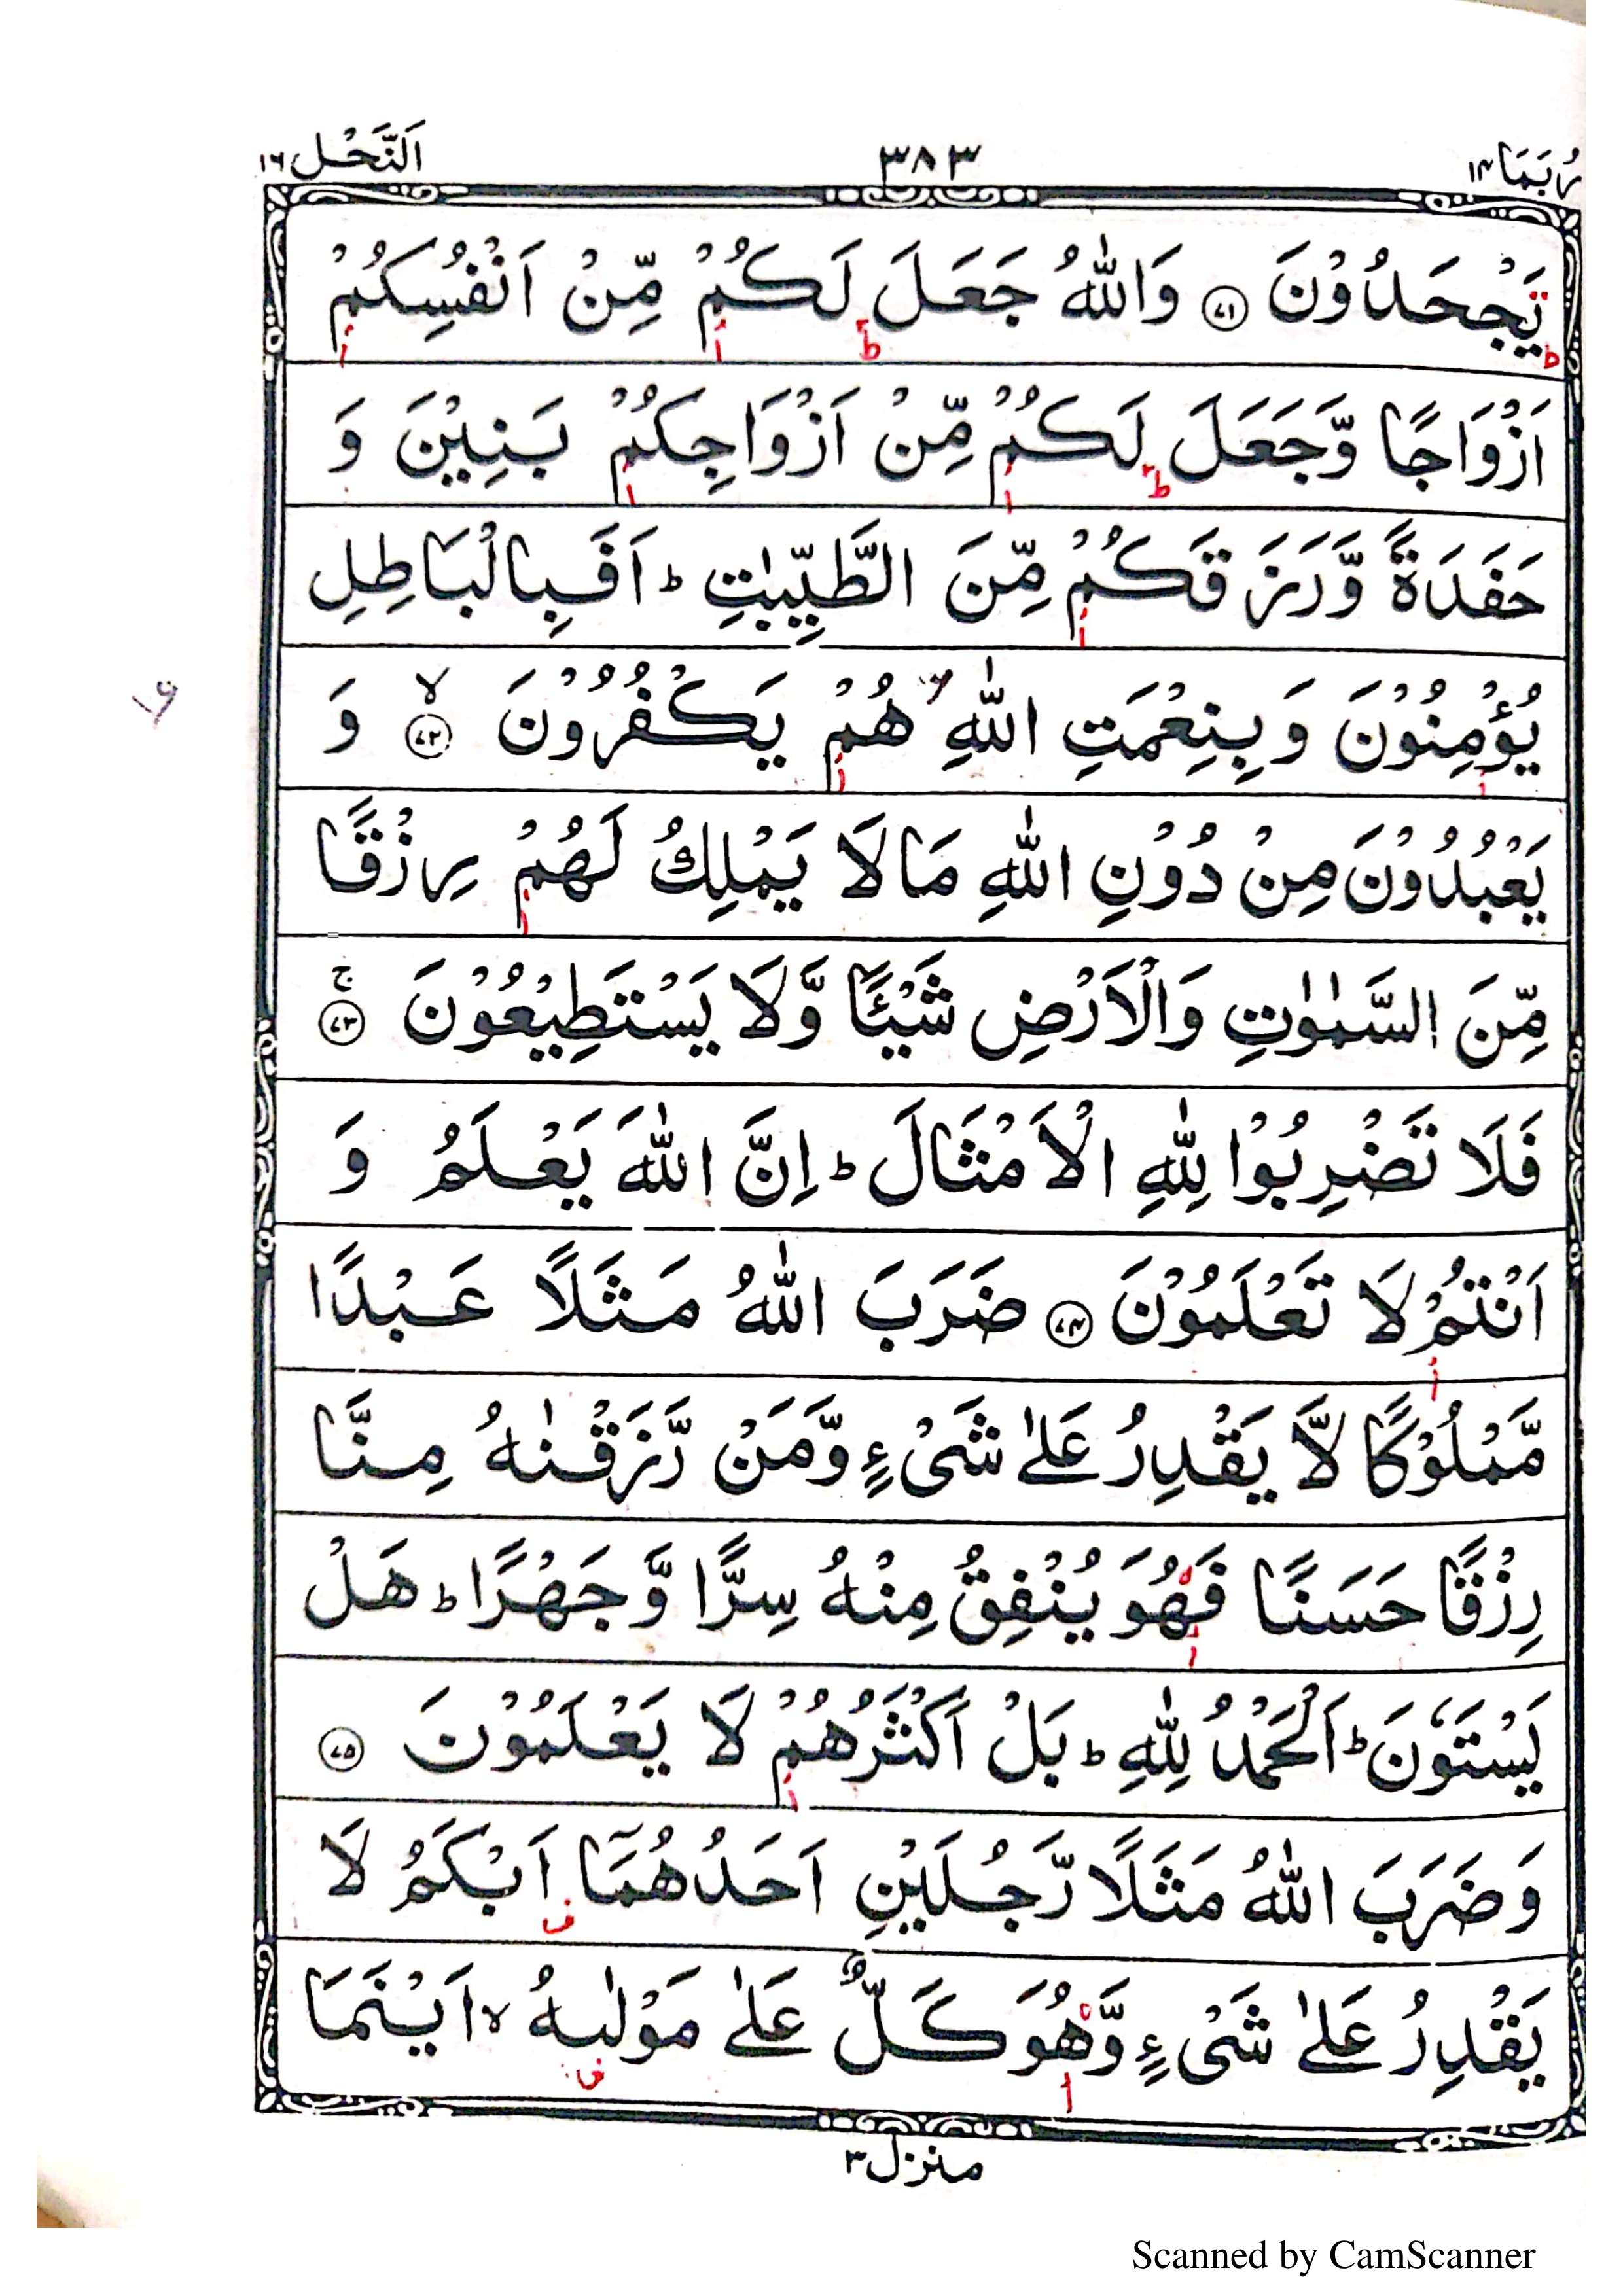 رُبَمَا ١٤ ٣٨٣ اَلنَّحْل ١٦
يَجْحَدُوْنَ ﴿٧١﴾ وَاللّٰهُ جَعَلَ لَكُمْ مِّنْ اَنْفُسِكُمْ
اَزْوَاجًا وَّجَعَلَ لَكُمْ مِّنْ اَزْوَاجِكُمْ بَنِيْنَ وَ
حَفَدَةً وَّرَزَقَكُمْ مِّنَ الطَّيِّبٰتِ ؕ اَفَبِالْبَاطِلِ
يُؤْمِنُوْنَ وَبِنِعْمَتِ اللّٰهِ هُمْ يَكْفُرُوْنَ ۙ﴿٧٢﴾ وَ
يَعْبُدُوْنَ مِنْ دُوْنِ اللّٰهِ مَا لَا يَمْلِكُ لَهُمْ رِزْقًا
مِّنَ السَّمٰوٰتِ وَالْاَرْضِ شَيْـًٔا وَّلَا يَسْتَطِيْعُوْنَ ۚ﴿٧٣﴾
فَلَا تَضْرِبُوْا لِلّٰهِ الْاَمْثَالَ ؕ اِنَّ اللّٰهَ يَعْلَمُ وَ
اَنْتُمْ لَا تَعْلَمُوْنَ ﴿٧٤﴾ ضَرَبَ اللّٰهُ مَثَلًا عَبْدًا
مَّمْلُوْكًا لَّا يَقْدِرُ عَلٰى شَىْءٍ وَّمَنْ رَّزَقْنٰهُ مِنَّا
رِزْقًا حَسَنًا فَهُوَ يُنْفِقُ مِنْهُ سِرًّا وَّجَهْرًا ؕ هَلْ
يَسْتَوٗنَ ؕ اَلْحَمْدُ لِلّٰهِ ؕ بَلْ اَكْثَرُهُمْ لَا يَعْلَمُوْنَ ﴿٧٥﴾
وَضَرَبَ اللّٰهُ مَثَلًا رَّجُلَيْنِ اَحَدُهُمَاۤ اَبْكَمُ لَا
يَقْدِرُ عَلٰى شَىْءٍ وَّهُوَ كَلٌّ عَلٰى مَوْلٰىهُ ۙ اَيْنَمَا
منزل ٣
Scanned by CamScanner